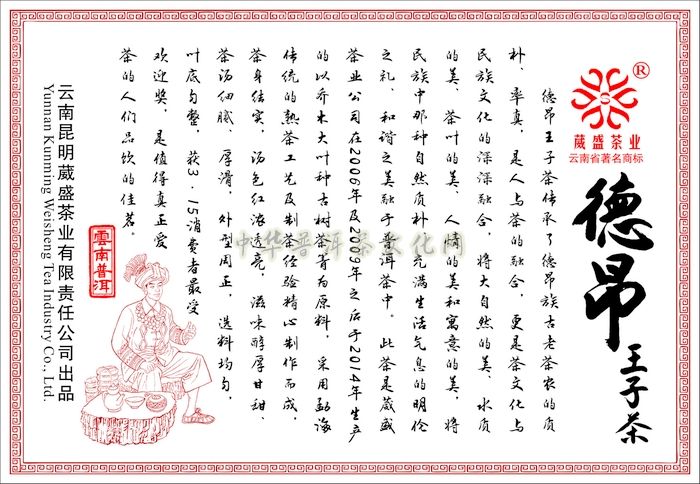 葳盛茶业
®
云南省著名商标
德昂
王子茶
德昂王子茶传承了德昂族古老茶农的质
朴、率真，是人与茶的融合，更是茶文化与
民族文化的深深融合，将大自然的美、水质
的美、茶叶的美、人情的美和寓意的美，将
民族中那种自然质朴、充满生活气息的明伦
之礼、和谐之美融于普洱茶中。此茶是葳盛
茶业公司在2006年及2009年之后于2014年生产
的以乔木大叶种古树茶青为原料，采用勐海
传统的熟茶工艺及制茶经验精心制作而成，
茶身结实，汤色红浓透亮，滋味醇厚甘甜，
茶汤细腻、厚滑，外型周正，选料均匀，
叶底匀整，获3.15消费者最受
欢迎奖，是值得真正爱
茶的人们品饮的佳茗。
雲南普洱
云南昆明葳盛茶业有限责任公司出品
Yunnan Kunming Weisheng Tea Industry Co., Ltd.
中华普洱茶文化网